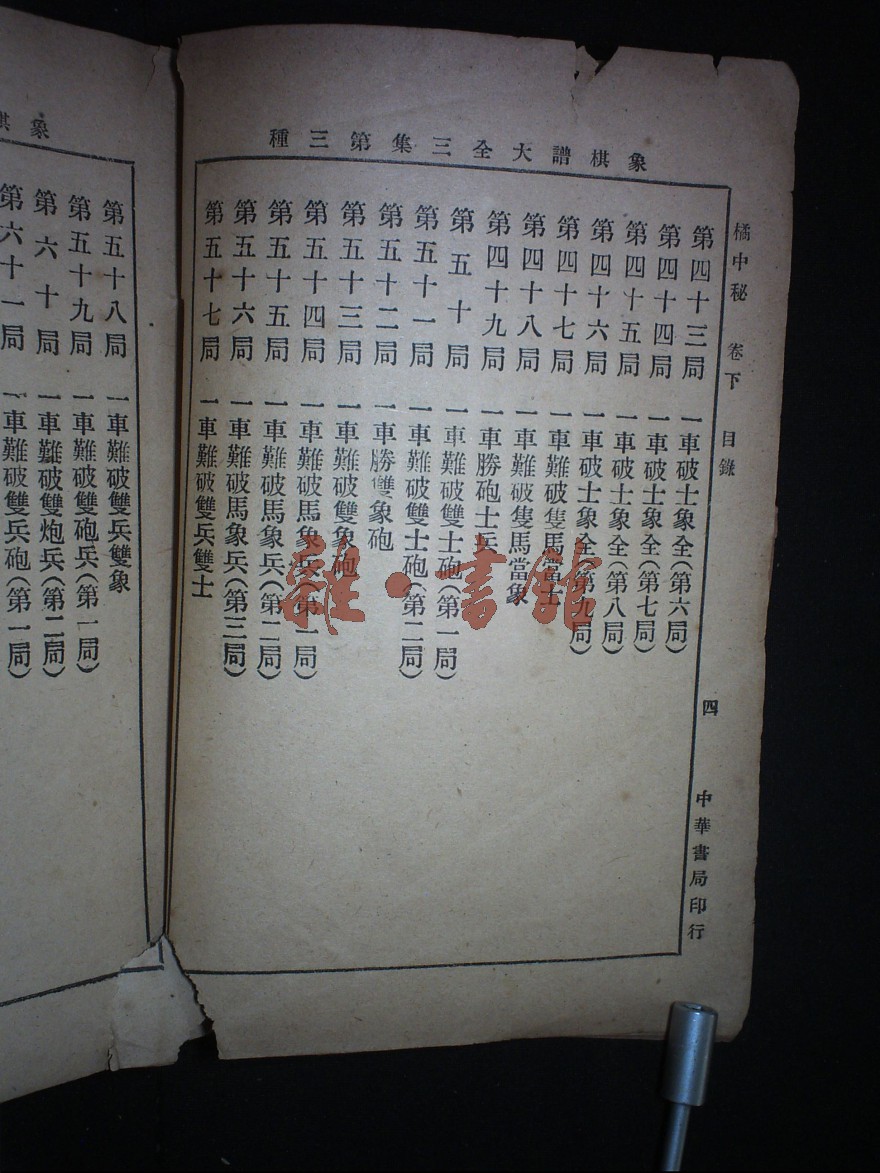 象棋譜大全三集第三種
橘中秘 卷下 目錄 四 中華書局印行
第四十三局 一車破士象全(第六局)
第四十四局 一車破士象全(第七局)
第四十五局 一車破士象全(第八局)
第四十六局 一車破士象全(第九局)
第四十七局 一車難破隻馬當士
第四十八局 一車難破隻馬當象
第四十九局 一車勝砲士兵
第五十局 一車難破雙士砲(第一局)
第五十一局 一車難破雙士砲(第二局)
第五十二局 一車勝雙象砲
第五十三局 一車難破雙象砲
第五十四局 一車難破馬象兵(第一局)
第五十五局 一車難破馬象兵(第二局)
第五十六局 一車難破馬象兵(第三局)
第五十七局 一車難破雙兵雙士
象棋
第五十八局 一車難破雙兵雙象
第五十九局 一車難破雙砲兵(第一局)
第六十局 一車難破雙炮兵(第二局)
第六十一局 一車難破雙兵砲(第一局)
雜·書館